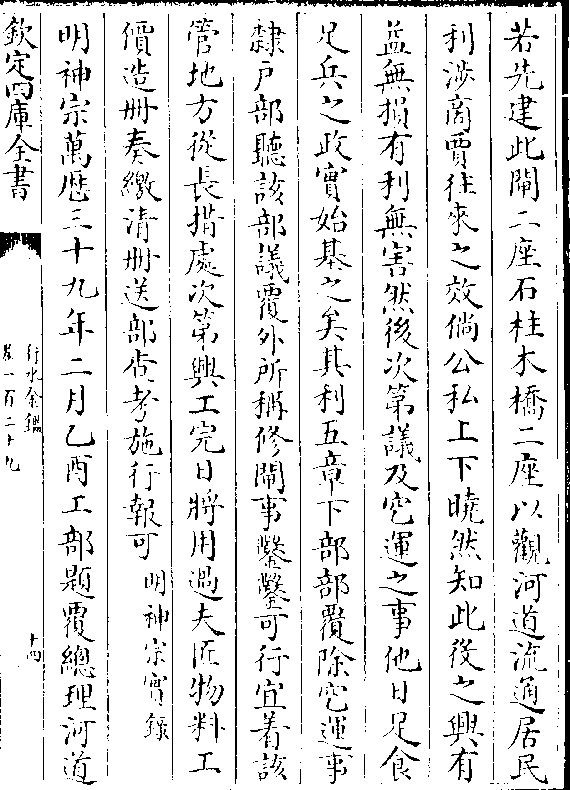 若先建此閘二座石柱木橋二座以觀河道流通居民
利涉商賈往來之效倘公私上下曉然知此役之興有
益無損有利無害然後次第議及空運之事他日足食
足兵之政實始基之矣其利五章下部部覆除空運事
隸戶部聽該部議覆外所稱修閘事鑿鑿可行宜着該
管地方從長措處次第興工完日將用過夫匠物料工
價造冊奏繳清冊送部查考施行報可明神宗實錄
明神宗萬歷三十九年二月乙酉工部題覆總理河道
欽定四庫全書
行水金鑑
卷一百二十九
十四